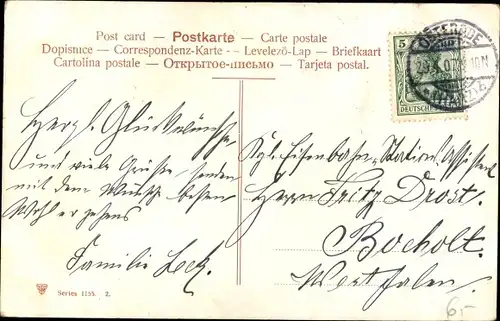 Post card – Postkarte – Carte postale
Dopisnice – Correspondenz-Karte – Levelezö-Lap – Briefkaart
Cartolina postale – Открытое-письмо – Tarjeta postal.
5
DEUTSCHES
OSTERODE
10N
(HARZ)
Herzl. Glückwünsche
und viele Grüße senden
mit dem Wunsche besten
Wohlergehens
Familie
Kgl. Eisenbahn-Stations Assistent
Herrn Fritz Drost.
Bocholt.
Westfalen.
Series 1155. 2.
6,-